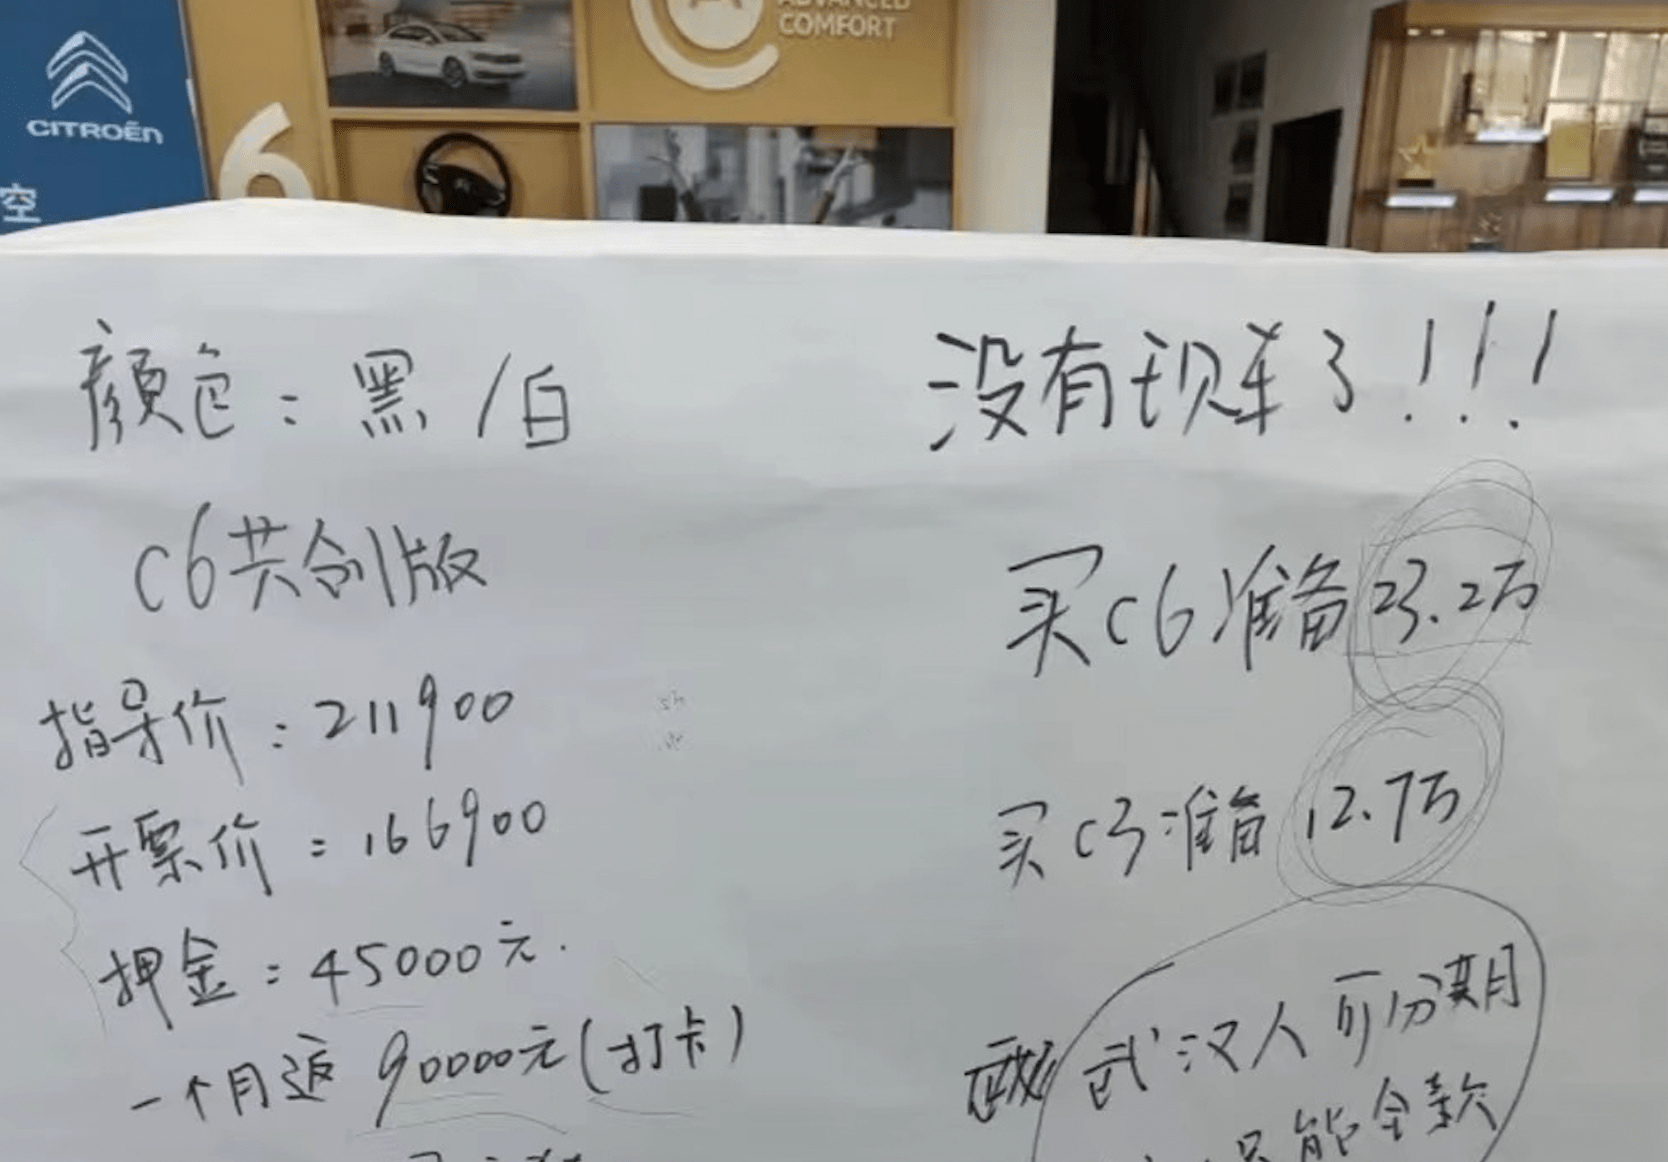 CITROËN
空
6
ADVANCED
COMFORT
颜色：黑/白
C6共创版
指导价：211900
开票价：166900
押金：45000元.
一个月返 90000元(打卡)
没有现车了!!!
买C6准备23.2万
买C3准备12.7万
武汉人可分期
只能全款